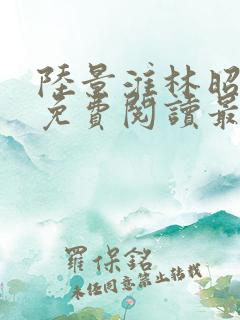 陸景淮林昭
免費閱讀最
羅保銘
未經同意禁止轉載